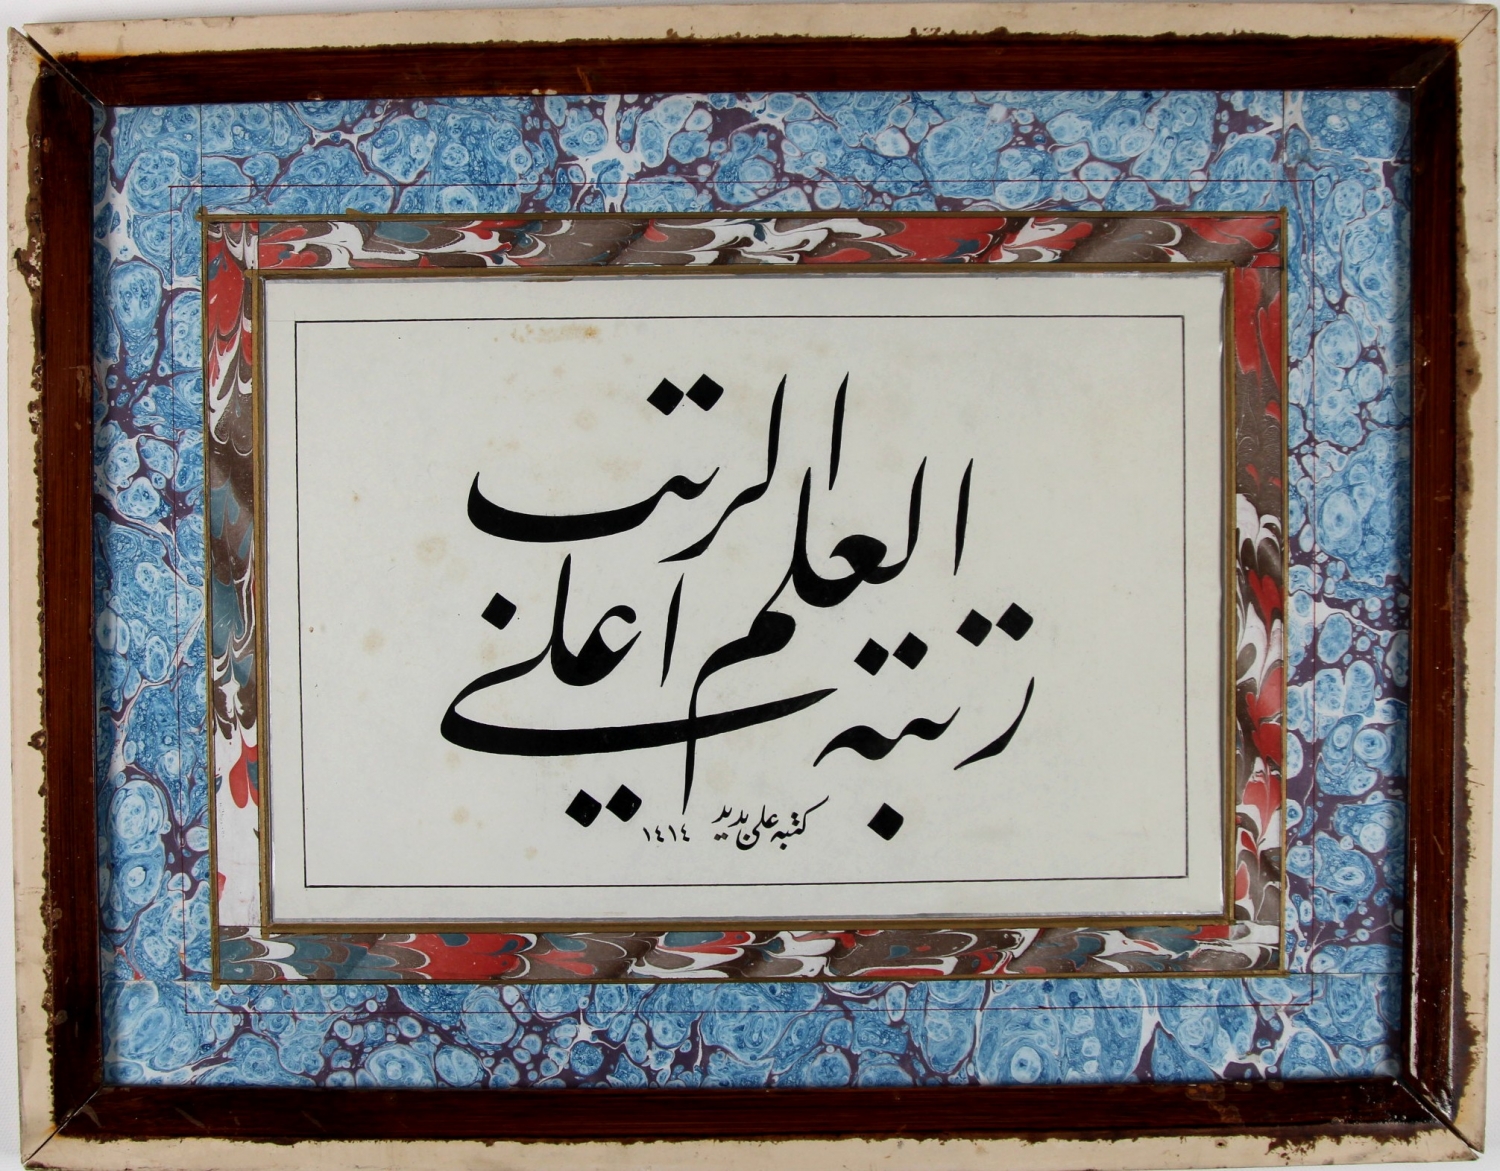 رتبة العلم اعلى الرتب
كتبه علی بدید ١٤١٤